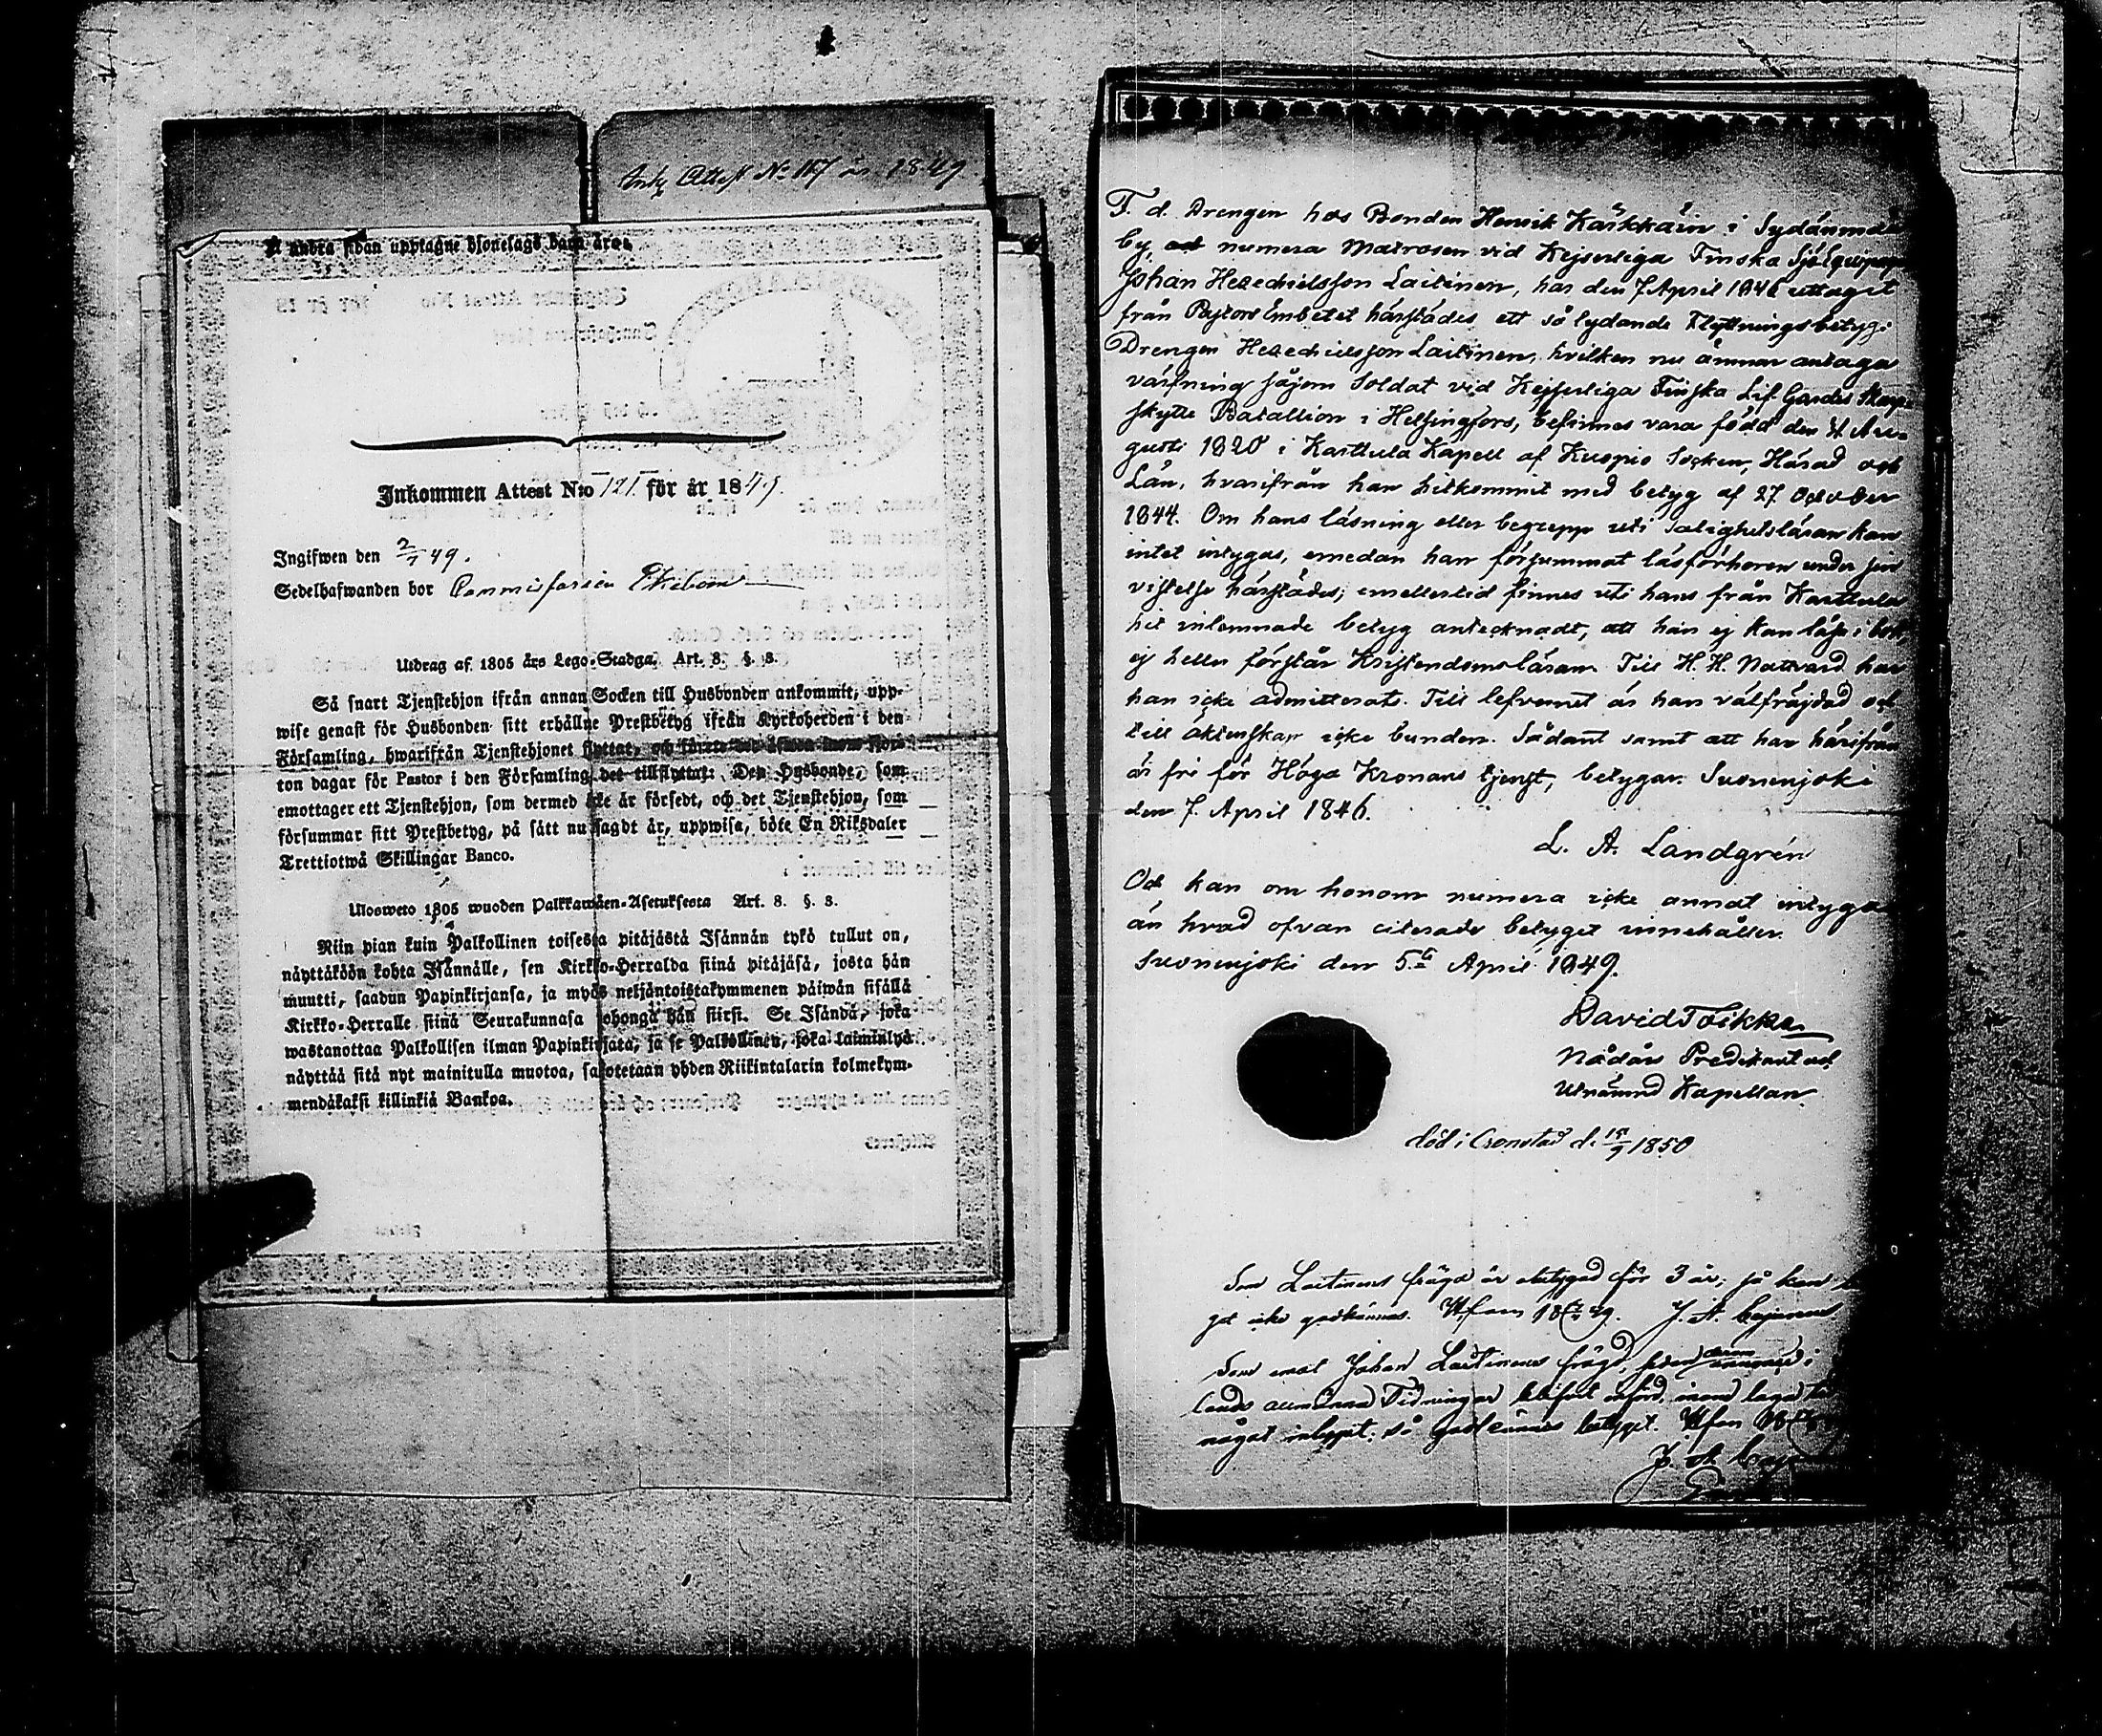 Ink. Attest No 117 år 1849
å andra sidan upptagne hjonelags barn äro:
Inkommen Attest N:o 121 för år 1849.
Ingifwen den 2/7 49.
Sedelhafwanden bor
Utdrag af 1805 års Lego-Stadga. Art. 8. §. 8.
Så snart Tjenstehjon ifrån annan Socken till Husbonden ankommit, upp-
wise genast för Husbonden sitt erhållne Prestbetyg ifrån Kyrkoherden i den
Församling, hwarifrån Tjenstehjonet flyttat, och
ton dagar för Pastor i den Församling det tillflyttat. Den Husbonde, som
emottager ett Tjenstehjon, som dermed icke är försedt, och det Tjenstehjon, som
försummar sitt Prestbetyg, på sätt nu sagdt är, uppwisa, böte En Riksdaler
Trettiotwå Skillingar Banco.
Ulosweto 1805 wuoden Palkkawäen-Asetuksesta Art. 8. §. 8.
Niin pian kuin Palkollinen toisesta pitäjästä Isännän tykö tullut on,
näyttäköön kohta Isännälle, sen Kirkko-Herralda siinä pitäjäsä, josta hän
muutti, saadun Papinkirjansa, ja myös neljäntoistakymmenen päiwän sisällä
Kirkko-Herralle siinä Seurakunnasa johonga hän siirsi. Se Isändä, joka
wastanottaa Palkollisen ilman Papinkirjata, ja se Palkollinen, joka laiminlyö
näyttää sitä nyt mainitulla muotoa, sakotetaan yhden Riikintalarin kolmekym-
mendäkaksi killinkiä Bankoa.
F. d. Drengen hos Bonden Henrik Kärkkäin i Sydänmaa
by, numera Matrosen vid Kejserliga Finska Sjöequipage
Johan Hezechielsson Laitinen, har den 7 April 1846 uttagit
från Pastors Embetet härstädes ett så lydande Flyttningsbetyg:
Drengen Hezechielsson Laitinen, hvilken nu ämnar antaga
värfning såsom Soldat vid Kejserliga Finska Lif Gardes Skarp-
skytte Batallion i Helsingfors, befinnes vara född den Au-
gusti 1820 i Karttula Kapell af Kuopio Socken, Härad och
Län, hvarifrån han hitkommit med betyg af 27 October
1844. Om hans läsning eller begrepp uti salighetsläran kan
intet intygas, emedan han försummat läsförhören under sin
vistelse härstädes; emellertid finnes uti hans från Karttula
hit inlemnade betyg antecknadt, att han ej kan läsa i bok,
ej heller förstår Kristendomsläran. Till H. H. Nattvard har
han icke admitterats. Till lefvernet är han välfräjdad och
till äktenskap icke bunden. Sådant samt att han härifrån
är fri för Höga Kronans tjenst, betygar. Suonenjoki
den 7. April 1846.
L. A. Landgrén
Och kan om honom numera icke annat intygas
än hvad ofvan citerade betyget innehåller.
Suonenjoki den 5te April 1849.
David Toikka
Nådårs Predikant och
Utnämnd Kapellan.
död i Cronstad d. 15/7 1850
Som Laitinens frägd är obetygad för 3 år, så kan
get icke godkännas. Ufom 18 49. J. A.
Som emot Johan Laitinens frägd, sedan derom annonce i
lands allmänna Tidningar blifvit införd, inom laga
något inlupit; så godkännes betyget. Ufom
J. A.